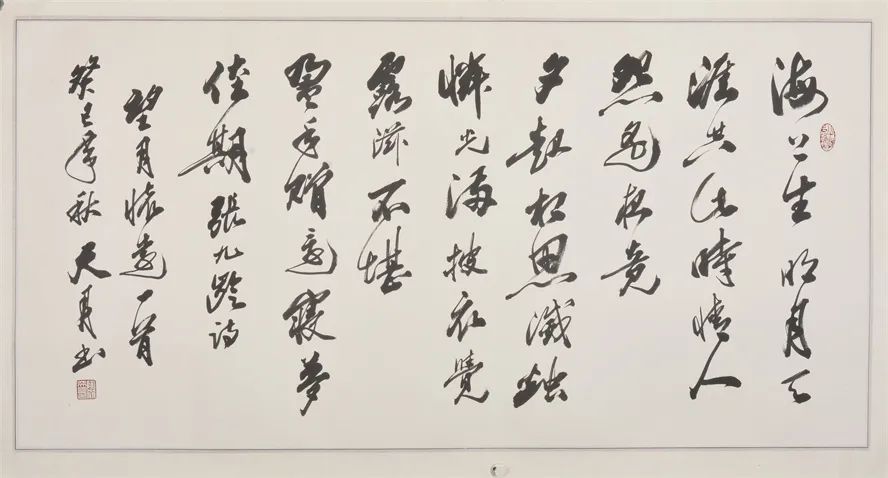 海上生明月天
涯共此時情人
怨遥夜竟
夕起相思滅燭
憐光滿披衣覺
露滋不堪
盈手贈還寢夢
佳期 張九齡詩
望月懷遠一首
癸巳年秋 天 书